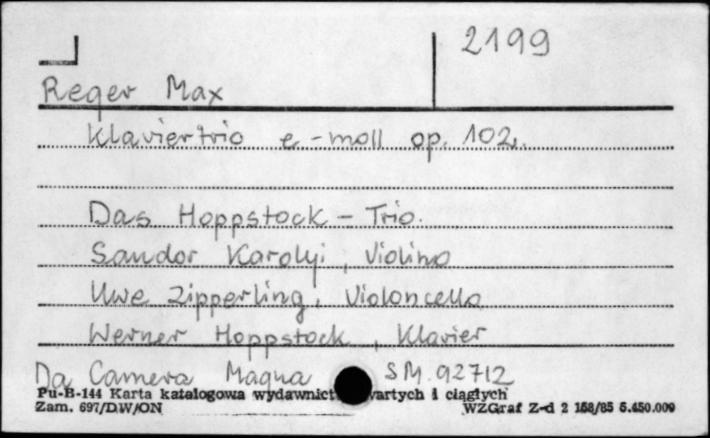 2199
Reger Max
Klaviertrio e-moll op. 102.
Das Hoppstock - Trio.
Sandor Karolyi, Violino
Uwe Zipperling, Violoncello
Werner Hoppstock, Klavier
Da Camera Magna SM. 92712
Pu-B-144 Karta katalogowa wydawnict wartych i ciągłych
Zam. 697/DW/ON WZGraf Z-d 2 158/85 5.450.000